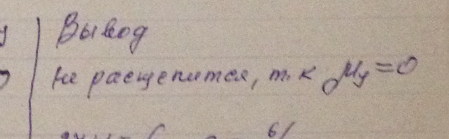 Вывод
не расщепится, т.к My=0